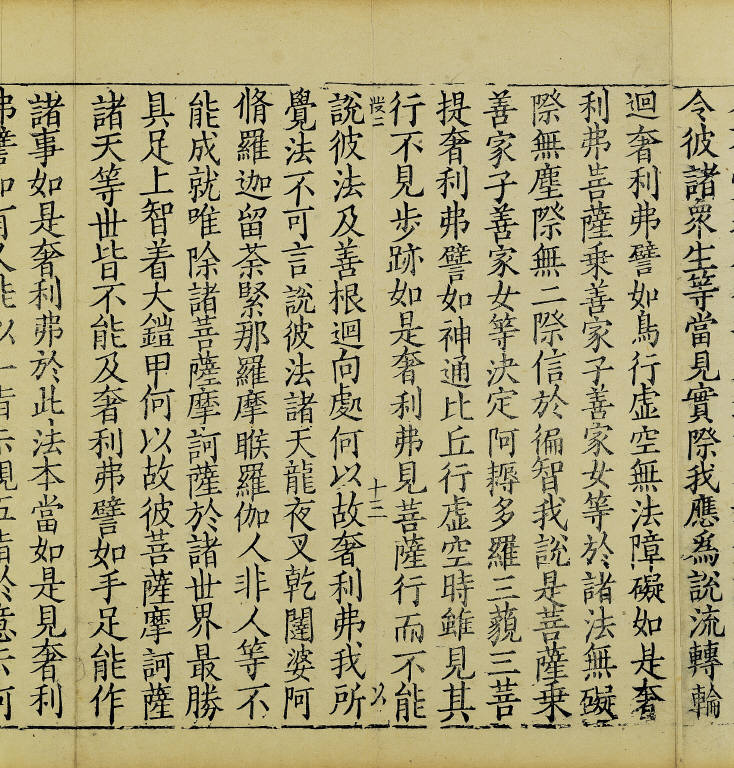 令彼諸衆生等當見實際我應爲說流轉輪
迴奢利弗譬如鳥行虛空無法障礙如是奢
利弗菩薩乘善家子善家女等於諸法無礙
際無塵際無二際信於徧智我說是菩薩乘
善家子善家女等決定阿耨多羅三藐三菩
提奢利弗譬如神通比丘行虛空時雖見其
行不見步跡如是奢利弗見菩薩行而不能
十三
說彼法及善根迴向處何以故奢利弗我所
覺法不可言說彼法諸天龍夜叉乾闥婆阿
脩羅迦留荼緊那羅摩睺羅伽人非人等不
能成就唯除諸菩薩摩訶薩於諸世界最勝
具足上智着大鎧甲何以故彼菩薩摩訶薩
諸天等世皆不能及奢利弗譬如手足能作
諸事如是奢利弗於此法本當如是見奢利
弗譬如有人能以一指示現五指於意云何